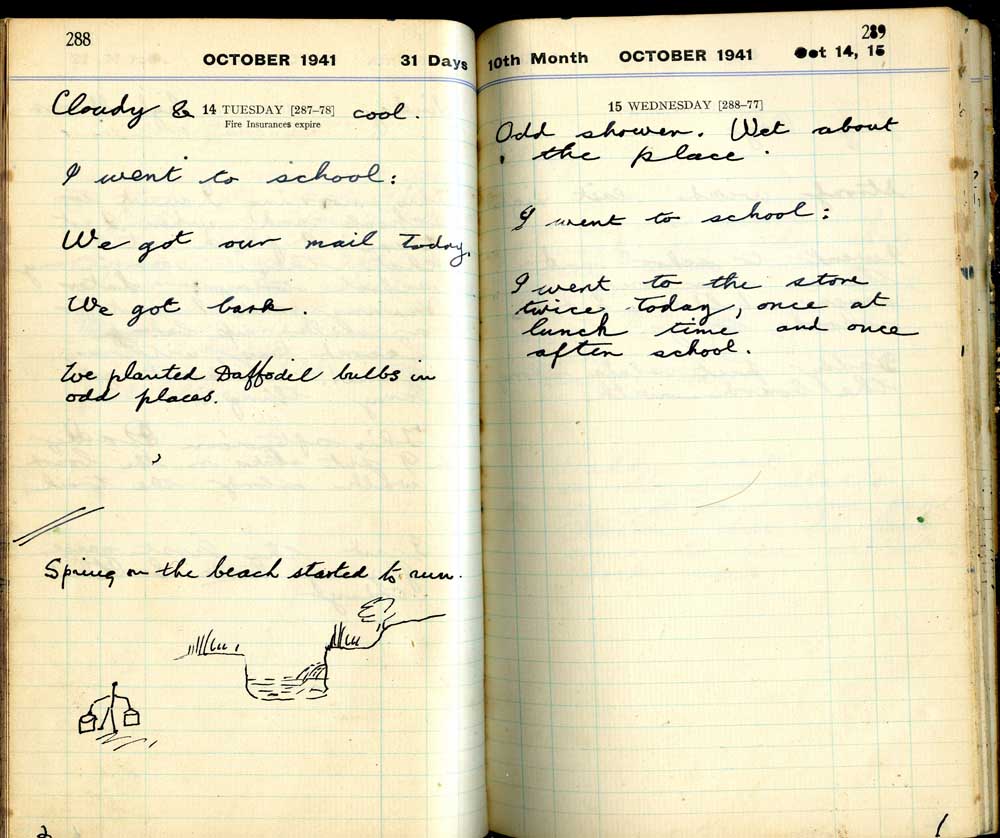 288
OCTOBER 1941 31 Days
Cloudy & 14 TUESDAY [287–78] cool.
Fire Insurances expire
I went to school:
We got our mail today.
We got bark.
We planted Daffodil bulbs in
odd places.
Spring on the beach started to run.
289
10th Month OCTOBER 1941 Oct 14, 15
15 WEDNESDAY [288–77]
Odd shower. Wet about
the place.
I went to school:
I went to the store
twice today, once at
lunch time and once
after school.